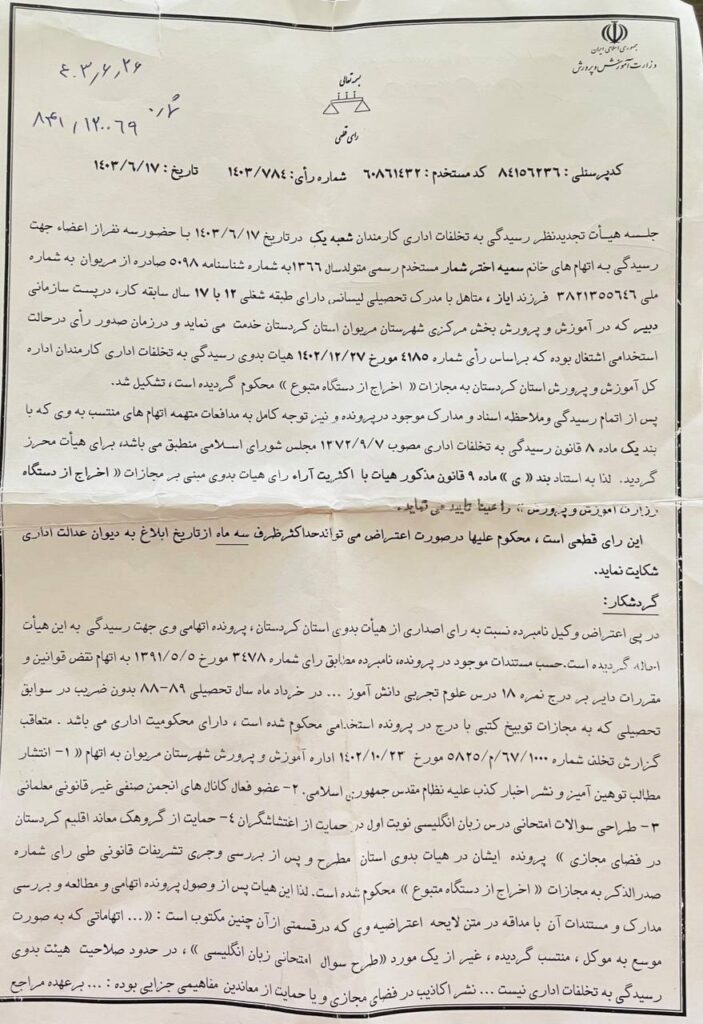 جمهوری اسلامی ایران
وزارت آموزش و پرورش
۴۰۳٫۶٫۲۶
۸۴۱٫۱۲۰۰۶۹
بسمه تعالی
رای قطعی
کدپرسنلی: ۸۴۱۵۶۲۳۶ کد مستخدم: ۶۰۸۶۱۴۳۲ شماره رأی: ۱۴۰۳/۷۸۴ تاریخ: ۱۴۰۳/۶/۱۷
جلسه هیأت تجدیدنظر رسیدگی به تخلفات اداری کارمندان شعبه یک درتاریخ ۱۴۰۳/۶/۱۷ با حضورسه نفراز اعضاء جهت
رسیدگی به اتهام های خانم سمیه اخترشمار مستخدم رسمی متولدسال ۱۳۶۶به شماره شناسنامه ۵۰۹۸ صادره از مریوان به شماره
ملی ۳۸۲۱۳۵۵۶۴۶ فرزند ایاز ، متاهل با مدرک تحصیلی لیسانس دارای طبقه شغلی ۱۲ با ۱۷ سال سابقه کار، درپست سازمانی
دبیر که در آموزش و پرورش بخش مرکزی شهرستان مریوان استان کردستان خدمت می نماید و درزمان صدور رأی درحالت
استخدامی اشتغال بوده که براساس رأی شماره ۴۱۸۵ مورخ ۱۴۰۲/۱۲/۲۷ هیات بدوی رسیدگی به تخلفات اداری کارمندان اداره
کل آموزش و پرورش استان کردستان به مجازات « اخراج از دستگاه متبوع » محکوم گردیده است ، تشکیل شد.
پس از اتمام رسیدگی وملاحظه اسناد و مدارک موجود درپرونده و نیز توجه کامل به مدافعات متهمه اتهام های منتسب به وی که با
بند یک ماده ۸ قانون رسیدگی به تخلفات اداری مصوب ۱۳۷۲/۹/۷ مجلس شورای اسلامی منطبق می باشد، برای هیأت محرز
گردید. لذا به استناد بند « ی » ماده ۹ قانون مذکور هیات با اکثریت آراء رای هیات بدوی مبنی بر مجازات « اخراج از دستگاه
وزارت آموزش و پرورش » را عینا تایید می نماید.
این رای قطعی است ، محکوم علیها درصورت اعتراض می تواندحداکثرظرف سه ماه ازتاریخ ابلاغ به دیوان عدالت اداری
شکایت نماید.
گردشکار:
در پی اعتراض وکیل نامبرده نسبت به رای اصداری از هیأت بدوی استان کردستان ، پرونده اتهامی وی جهت رسیدگی به این هیأت
احاله گردیده است.حسب مستندات موجود در پرونده، نامبرده مطابق رای شماره ۳۴۷۸ مورخ ۱۳۹۱/۵/۵ به اتهام نقض قوانین و
مقررات دایر بر درج نمره ۱۸ درس علوم تجربی دانش آموز ... در خرداد ماه سال تحصیلی ۸۹-۸۸ بدون ضریب در سوابق
تحصیلی که به مجازات توبیخ کتبی با درج در پرونده استخدامی محکوم شده است ، دارای محکومیت اداری می باشد . متعاقب
گزارش تخلف شماره ۵۸۲۵/م/۶۷/۱۰۰۰ مورخ ۱۴۰۲/۱۰/۲۳ اداره آموزش و پرورش شهرستان مریوان به اتهام « ۱- انتشار
مطالب توهین آمیز و نشر اخبار کذب علیه نظام مقدس جمهوری اسلامی. ۲- عضو فعال کانال های انجمن صنفی غیر قانونی معلمانی
۳- طراحی سوالات امتحانی درس زبان انگلیسی نوبت اول در حمایت از اغتشاشگران ۴- حمایت از گروهک معاند اقلیم کردستان
در فضای مجازی » پرونده ایشان در هیات بدوی استان مطرح و پس از بررسی وجری تشریفات قانونی طی رای شماره
صدرالذکر به مجازات « اخراج از دستگاه متبوع » محکوم شده است. لذا این هیات پس از وصول پرونده اتهامی و مطالعه و بررسی
مدارک و مستندات آن با مداقه در متن لایحه اعتراضیه وی که درقسمتی ازآن چنین مکتوب است : «... اتهاماتی که به صورت
موسع به موکل ، منتسب گردیده ، غیر از یک مورد «طرح سوال امتحانی زبان انگلیسی » ، در حدود صلاحیت هیئت بدوی
رسیدگی به تخلفات اداری نیست ... نشر اکاذیب در فضای مجازی و یا حمایت از معاندین مفاهیمی جزایی بوده : ... برعهده مراجع